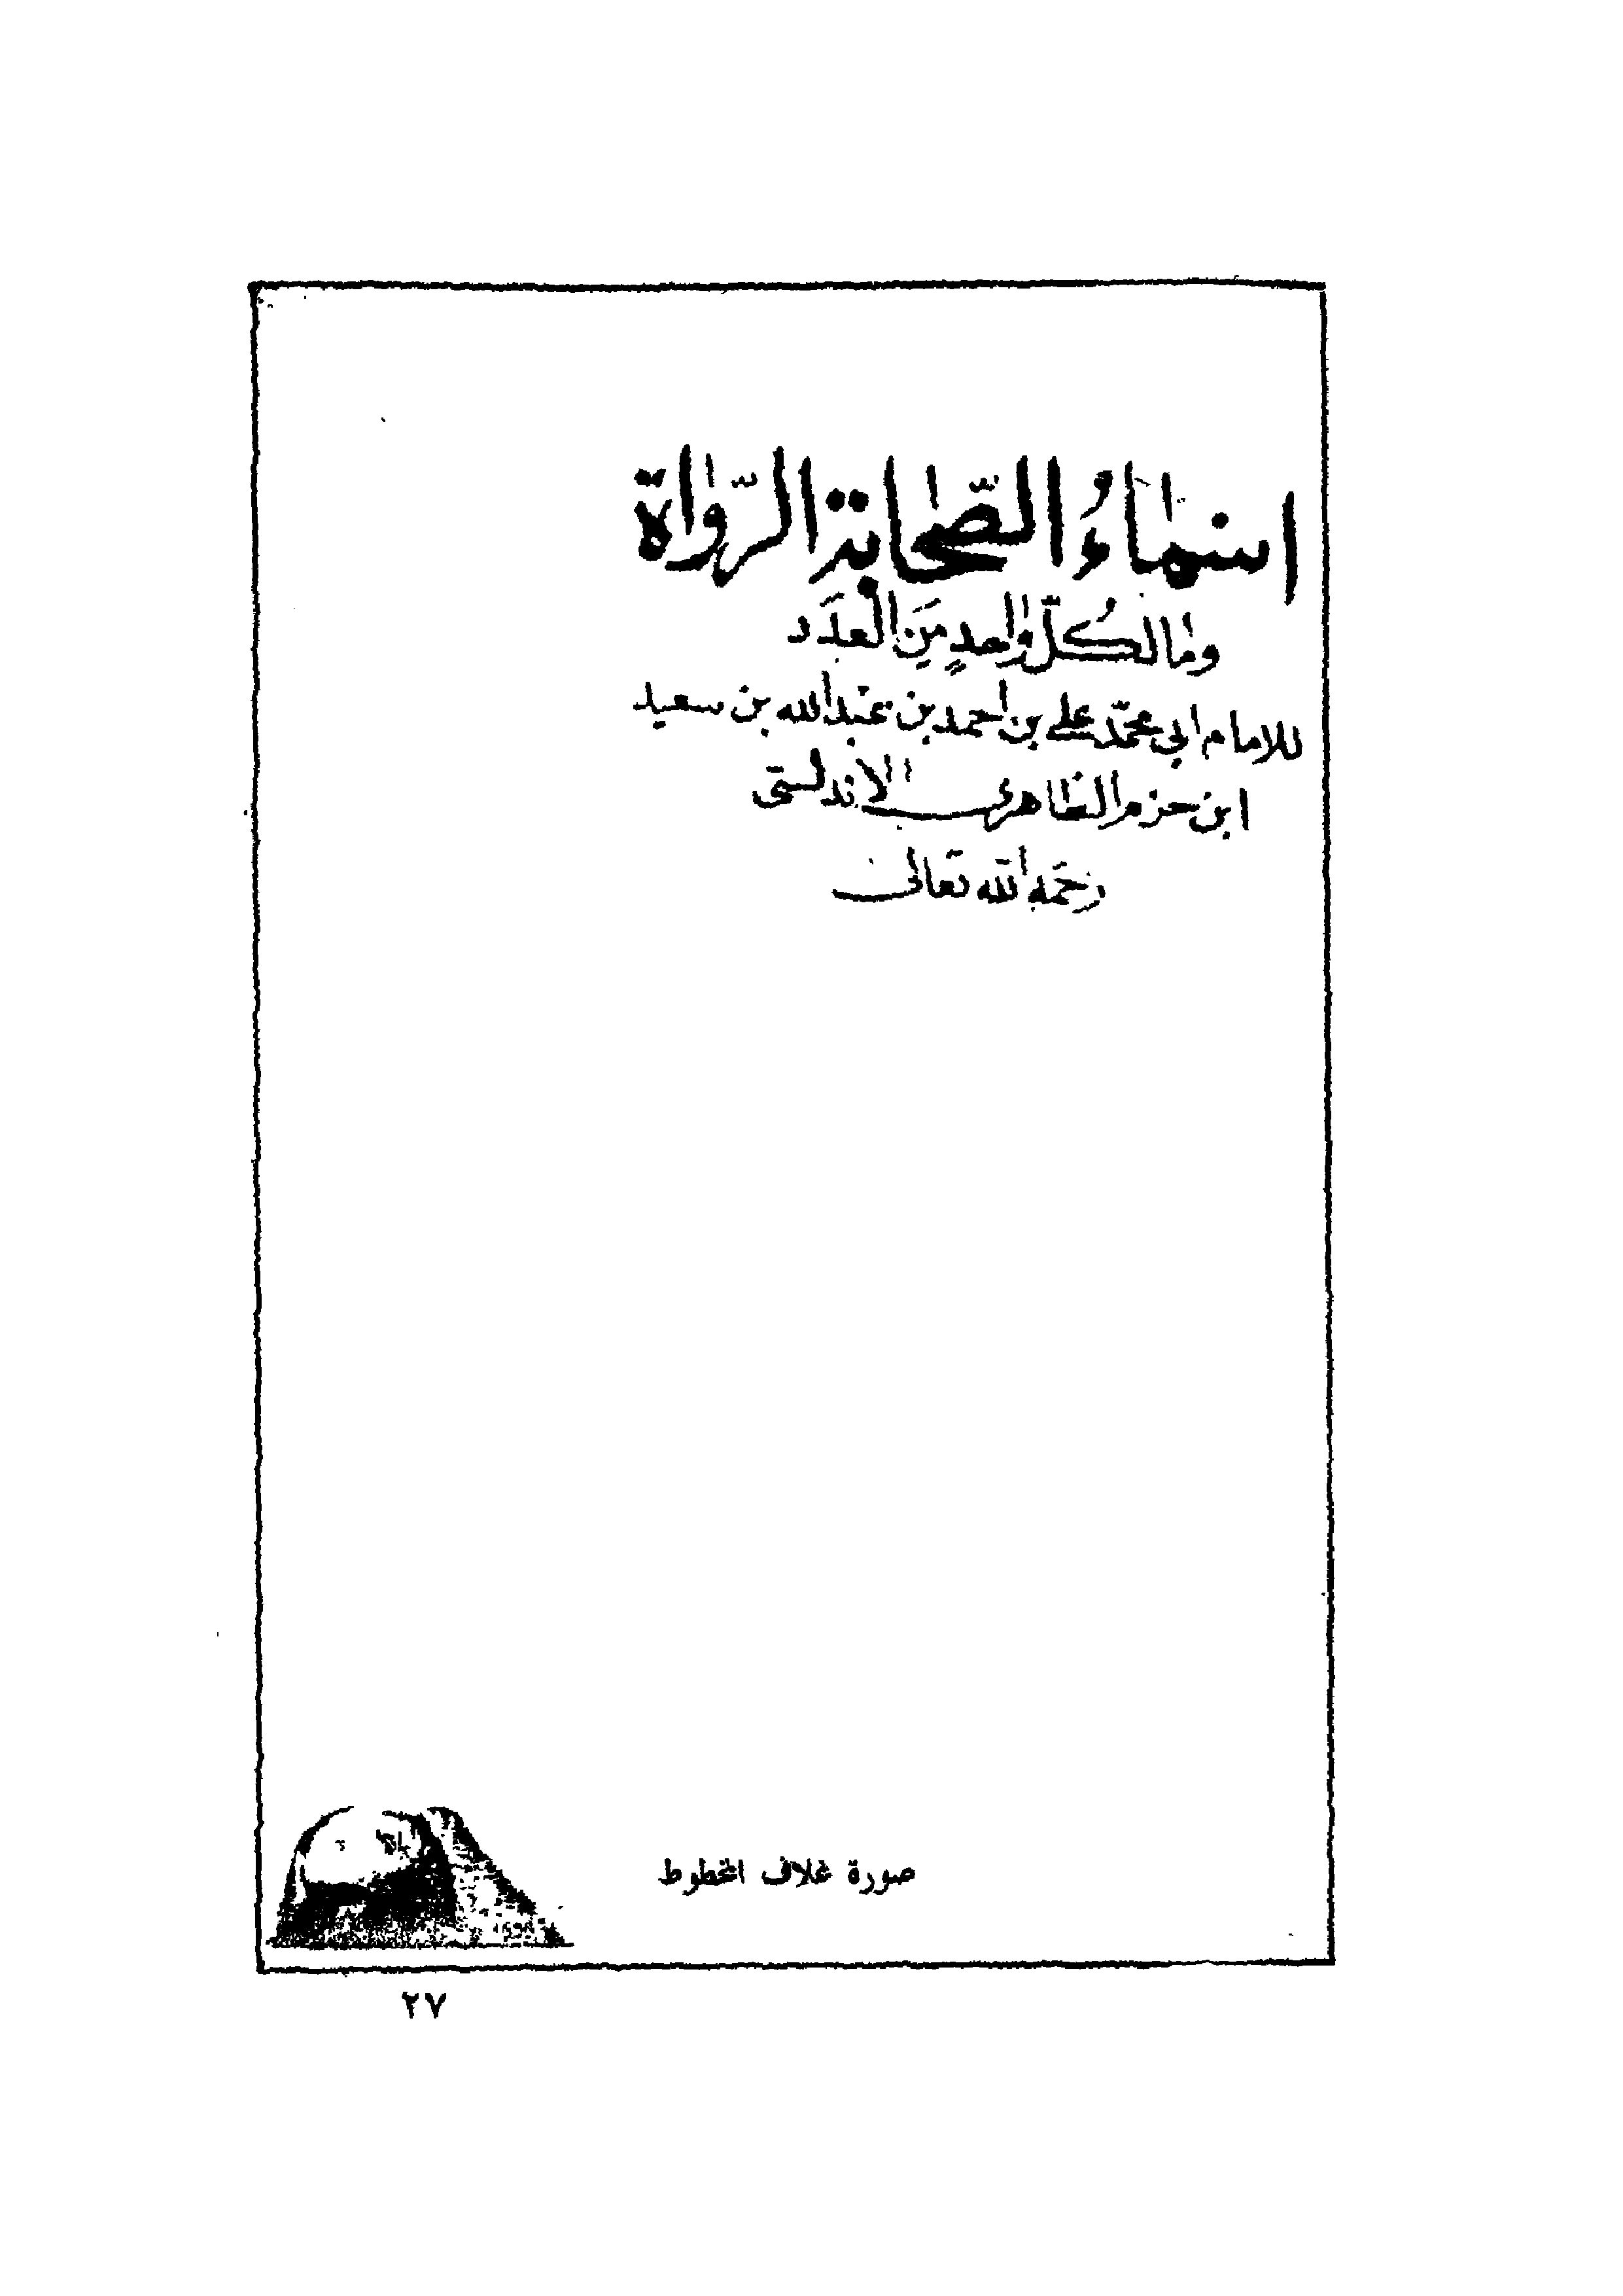 اسماءُ الصّحابة الرّواة
وما لكُلّ واحدٍ مَنِ العَدَد
للامام ابي محمّد علي بن احمد بن عبد الله بن سعيد
ابن حزم الظاهري الاندلسي
رحمَه الله تعالى
صورة غلاف المخطوط
٢٧